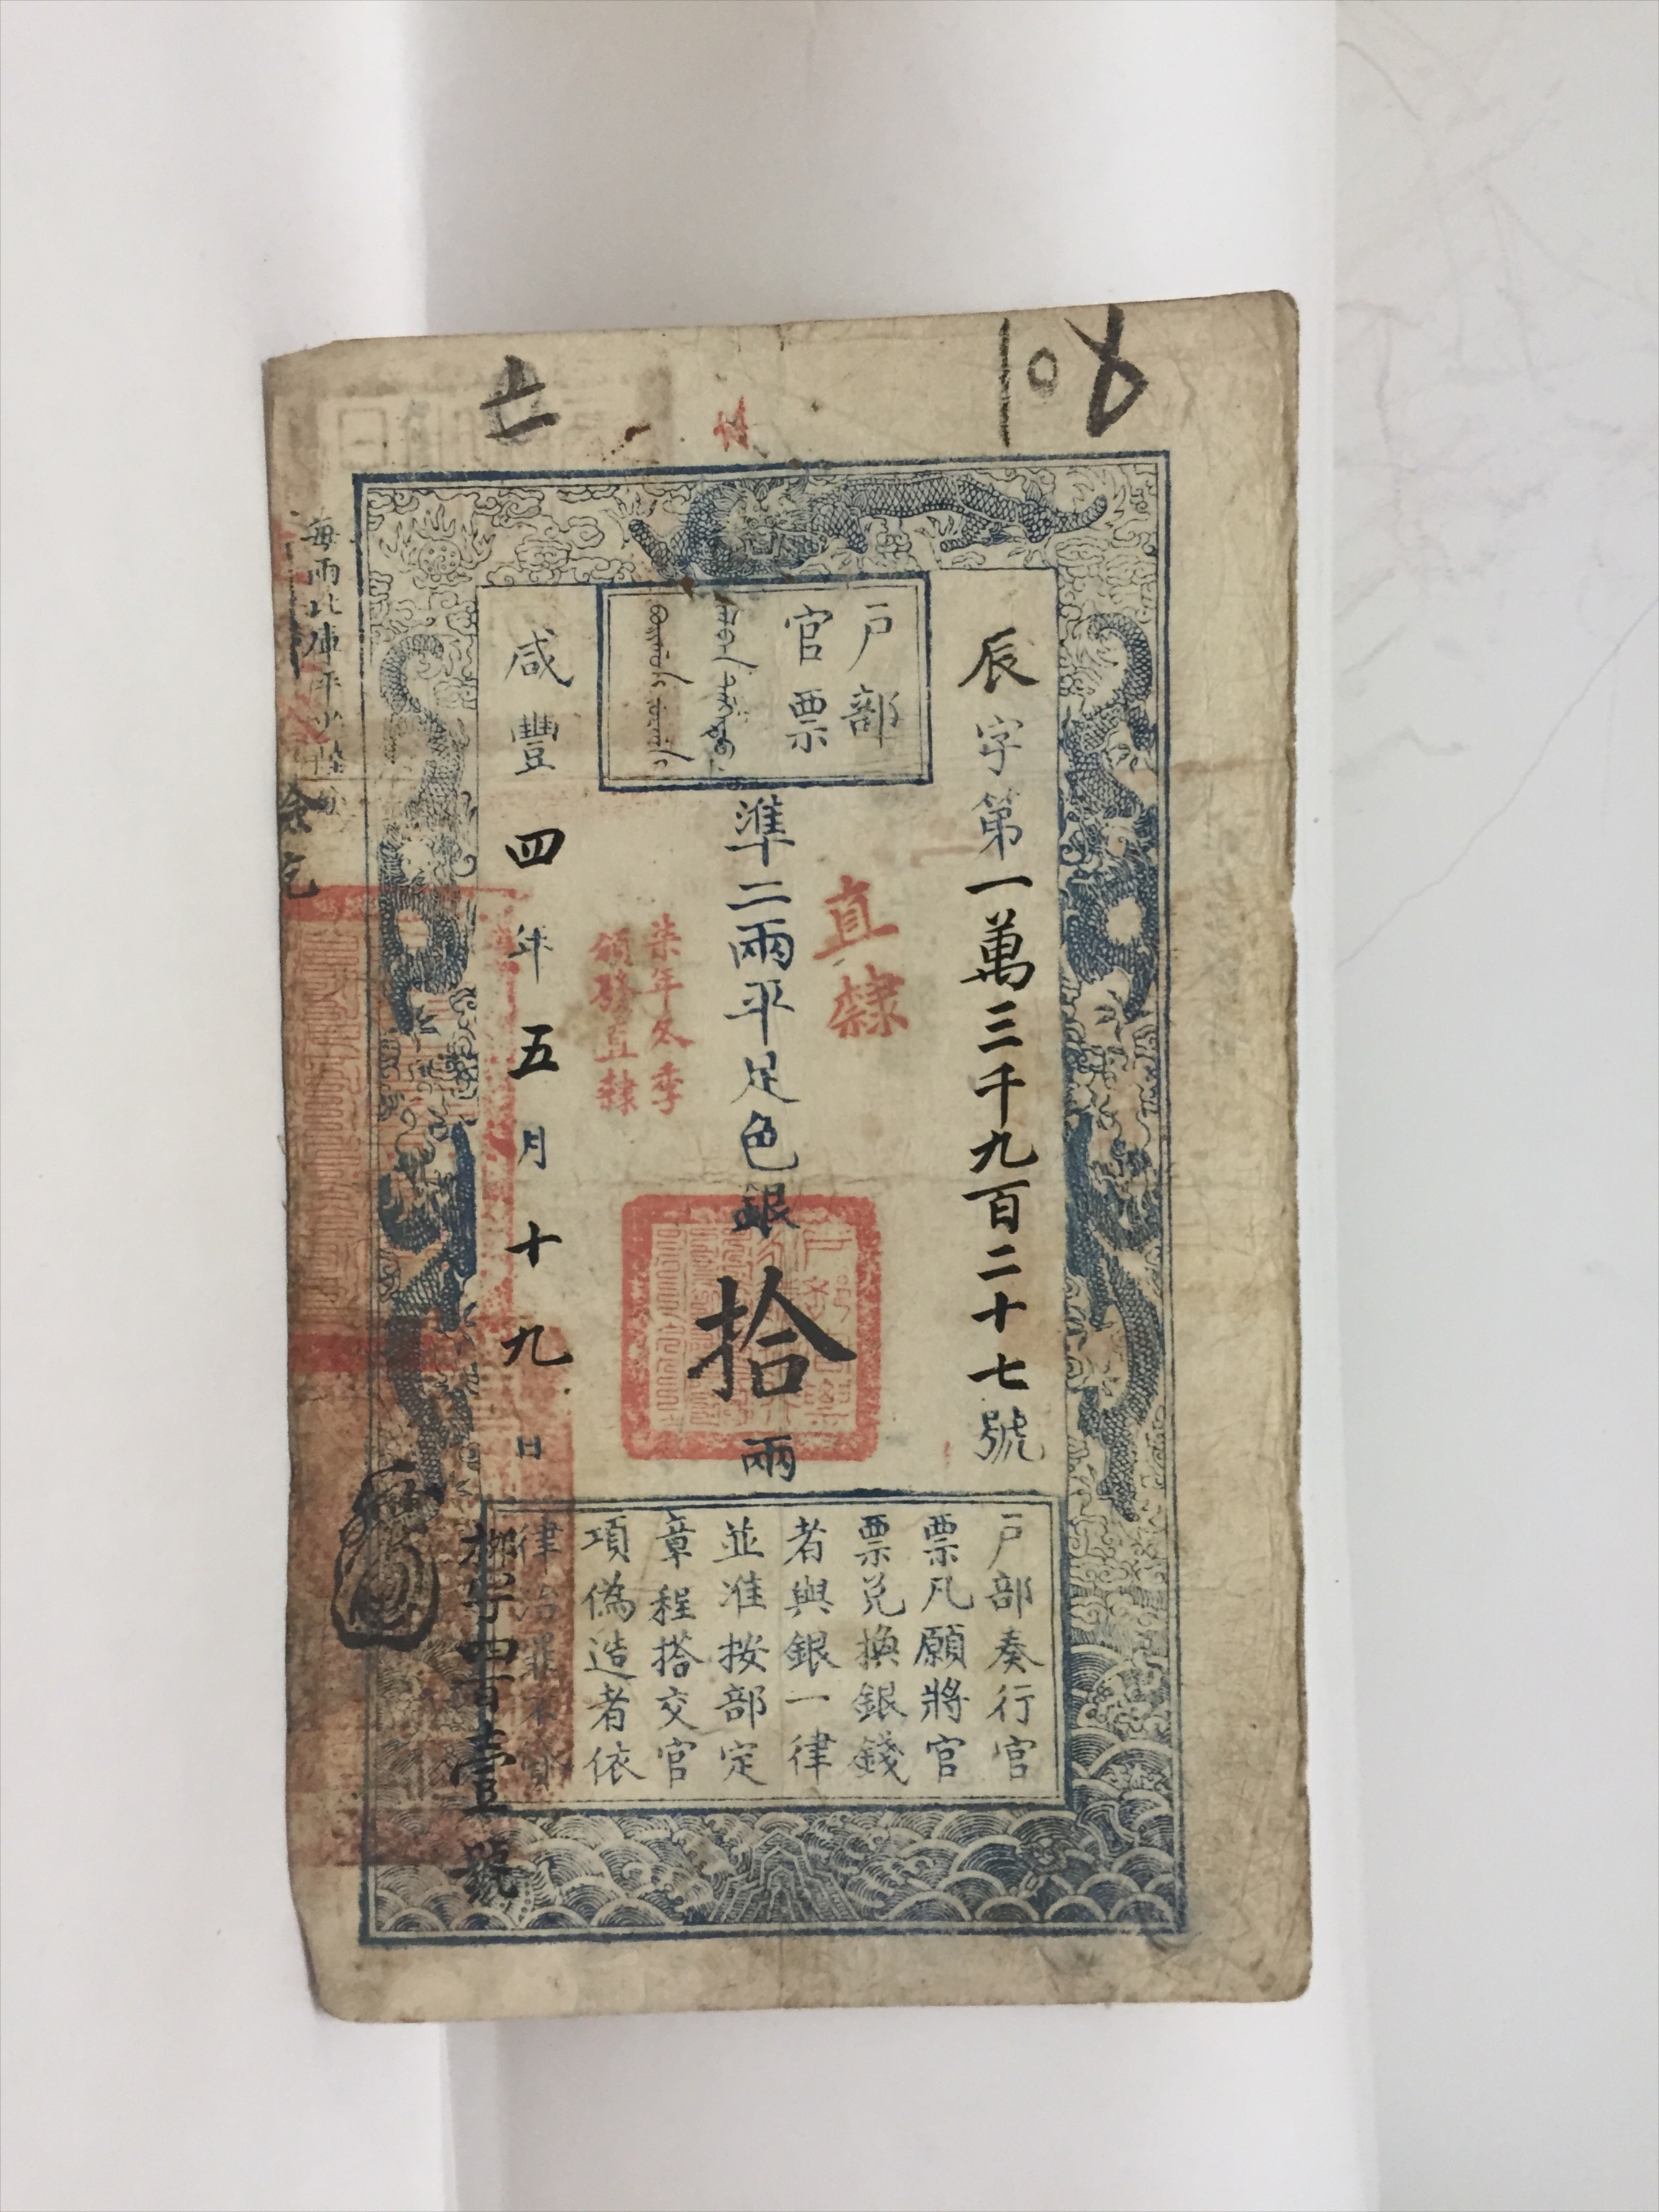 108
戶部
官票
辰字第一萬三千九百二十七號
直隸
準二兩平足色銀拾兩
柒年冬季
頒發直隸
咸豐四年五月十九日
戶部奏行官
票凡願將官
票兌換銀錢
者與銀一律
並准按部定
章程搭交官
項偽造者依
律治罪不貸
字四百壹號
每兩比庫平少